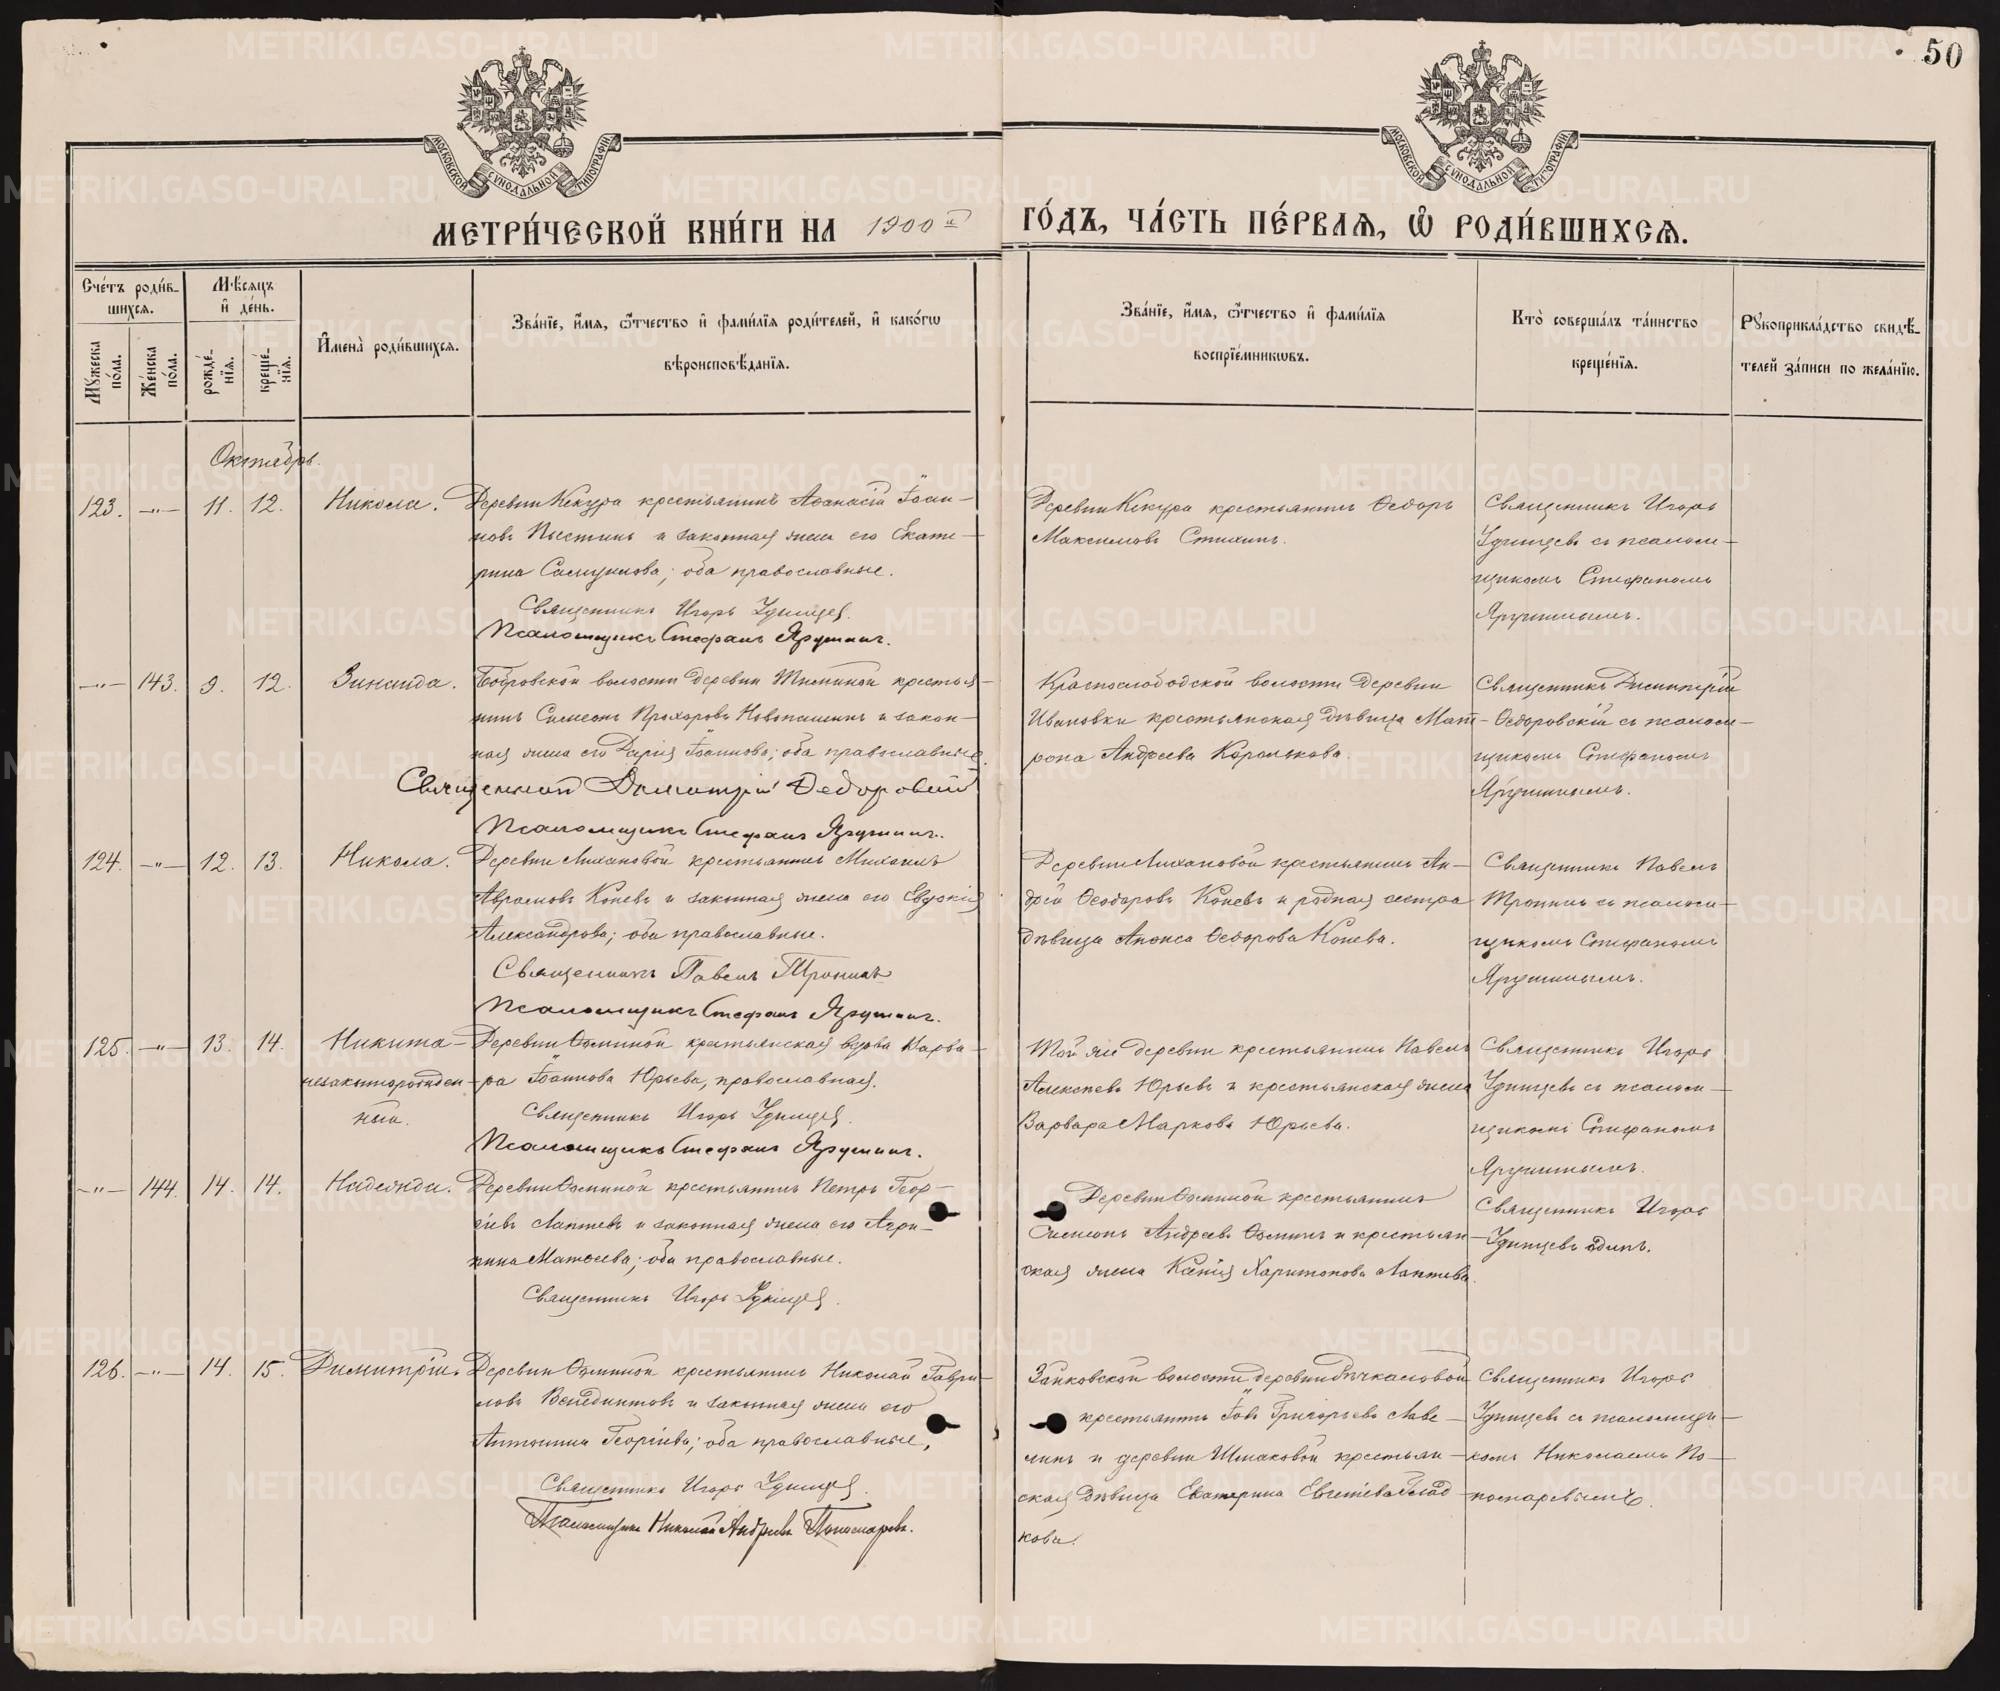 50
МОСКОВСКОЙ СѴНОДАЛЬНОЙ ТИПОГРАФІИ
МОСКОВСКОЙ СѴНОДАЛЬНОЙ ТИПОГРАФІИ
МЕТРИ́ЧЕСКОЙ КНИ́ГИ НА 1900й ГО́ДЪ, ЧА́СТЬ ПЕ́РВАѦ, Ѡ҆ РОДИ́ВШИХСѦ.
Сче́тъ роди́в-
шихсѧ.
Мꙋ́жеска по́ла.
Же́нска по́ла.
Мѣ́сѧцъ
и҆ де́нь.
рожде́-нїѧ.
креще́-нїѧ.
И҆мена̀ роди́вшихсѧ.
Зва́нїе, и҆́мѧ, ѻ҆́тчество и҆ фами́лїѧ роди́телей, и҆ како́гѡ
вѣроисповѣ́данїѧ.
Зва́нїе, и҆́мѧ, ѻ҆́тчество и҆ фами́лїѧ
воспрїе́мникѡвъ.
Кто̀ соверша́лъ та́инство
креще́нїѧ.
Рꙋкоприкла́дство свидѣ́-
телей за́писи по жела́нїю.
Октябрь.
123. —"— 11. 12. Никола.
Деревни Кекура крестьянинъ Аѳанасій Іоан-
новъ Пыстинъ и законная жена его Екате-
рина ; оба православные.
Священникъ Игорь Удинцев.
Псаломщикъ Стефанъ Ярушинъ.
Деревни Кекура крестьянинъ Ѳедоръ
Максимовъ Стихинъ.
Священникъ Игорь
Удинцевъ съ псалом-
щикомъ Стефаномъ
Ярушинымъ.
—"— 143. 9. 12. Зинаида.
Бобровской волости деревни крестья-
нинъ Симеонъ Прохоровъ Новопашинъ и закон-
ная жена его Дарія Іоаннова; оба православные.
Священникъ Димитрій Ѳедоровскій
Псаломщикъ Стефанъ Ярушинъ.
Краснослободской волости деревни
Ивановки крестьянская дѣвица Мат-
рона Андреева Королькова.
Священникъ Димитрій
Ѳедоровскій съ псалом-
щикомъ Стефаномъ
Ярушинымъ.
124. —"— 12. 13. Никола.
Деревни Лихановой крестьянинъ Михаилъ
Аврамовъ Коневъ и законная жена его Евдокія
Александрова; оба православные.
Священникъ Павелъ Тронинъ
Псаломщикъ Стефанъ Ярушинъ.
Деревни Лихановой крестьянинъ Ан-
дрей Ѳеодоровъ Коневъ и родная сестра
дѣвица Аѳонса Ѳедорова Конева.
Священникъ Павелъ
Тронинъ съ псалом-
щикомъ Стефаномъ
Ярушинымъ.
125. —"— 13. 14. Никита-
незаконнорожден-
ный.
Деревни Ѳоминой крестьянская вдова Варва-
ра Іоаннова Юрьева, православная.
Священникъ Игорь Удинцев.
Псаломщикъ Стефанъ Ярушинъ.
Той же деревни крестьянинъ Павелъ
Алексѣевъ Юрьевъ и крестьянская жена
Варвара Маркова Юрьева.
Священникъ Игорь
Удинцевъ съ псалом-
щикомъ Стефаномъ
Ярушинымъ.
—"— 144. 14. 14. Надежда.
Деревни Ѳоминой крестьянинъ Петръ Геор-
гіевъ Лаптевъ и законная жена его Агри-
пина Матѳеева; оба православные.
Священникъ Игорь Удинцев.
Деревни Ѳоминой крестьянинъ
Симеонъ Андреевъ Ѳоминъ и крестьян-
ская жена Ксенія Харитонова Лаптева.
Священникъ Игорь
Удинцевъ одинъ.
126. —"— 14. 15. Димитрій.
Деревни Ѳоминой крестьянинъ Николай Гаври-
ловъ Венедиктовъ и законная жена его
Антонина Георгіева; оба православные.
Священникъ Игорь Удинцев.
Псаломщикъ Николай Андреевъ Пономаревъ.
Зайковской волости деревни Речкаловой
крестьянинъ Іовъ Григорьевъ Лаве-
линъ и деревни Шмаковой крестьян-
ская дѣвица Екатерина Евгеніева Глад-
кова.
Священникъ Игорь
Удинцевъ съ псаломщи-
комъ Николаемъ По-
номаревымъ.